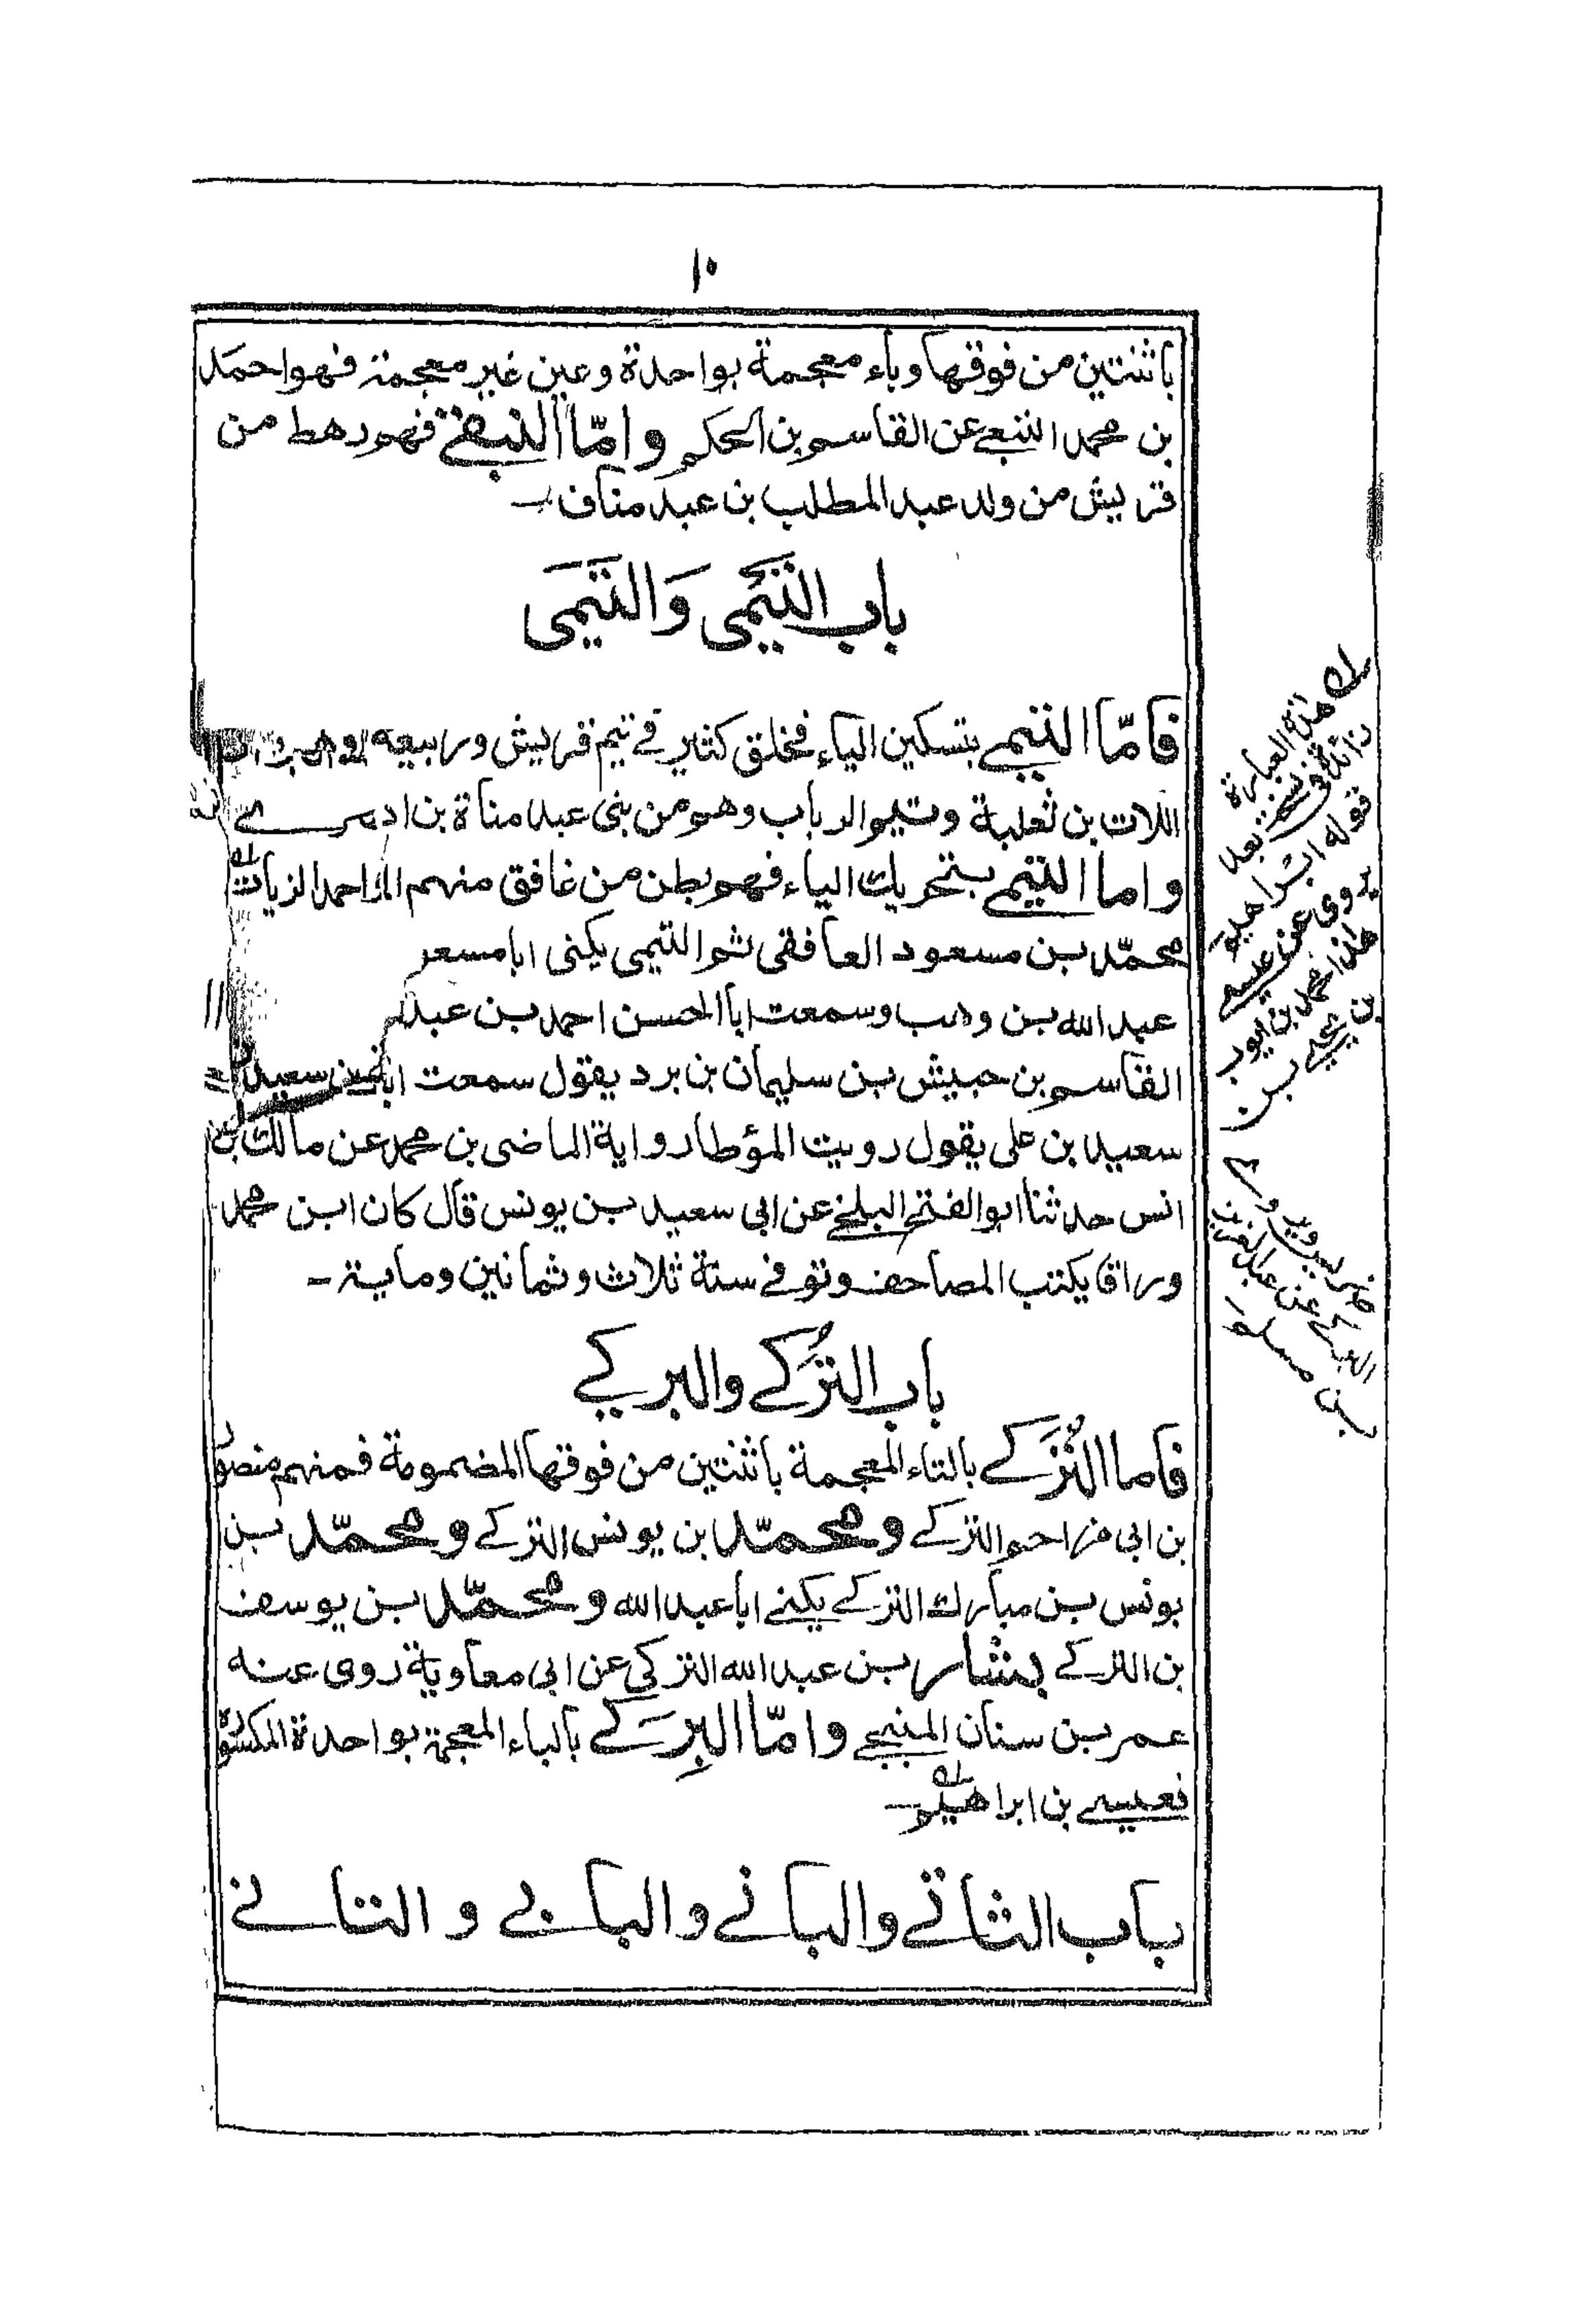 ١٠
باثنتين من فوقها وباء معجمة بواحدة وعين غير معجمة فهو احمد
بن محمد التبعي عن القاسم بن الحكم وامّا النبقي فهو رهط من
قريش من ولد عبد المطلب بن عبد مناف -
باب التَيْمى وَالتَيَمى
فامّا التيمي بتسكين الياء فخلق كثير في تيم قريش وربيعه
اللات بن ثعلبة وتيم الرباب وهو من بنى عبد مناة بن اد
واما التيمي بتحريك الياء فهو بطن من غافق منهم احمد الزيات
محمّد بن مسعود الغافقى ثم التيمى يكنى ابا مسعر
عبد الله بن وهب وسمعت ابا الحسن احمد بن عبد
القاسم بن حبيش بن سليمان بن برد يقول سمعت ابا سعيد
سعيد بن على يقول رويت المؤطا رواية الماضى بن محمد عن مالك بن
انس حدثنا ابو الفتح البلخي عن ابى سعيد بن يونس قال كان ابن محمد
وراقا يكتب المصاحف وتوفي سنة ثلاث وثمانين وماية -
باب التُركے والبركے
فاما التُركے بالتاء المعجمة باثنتين من فوقها المضمومة فمنهم منصور
بن ابى مزاحم التركے ومحمّد بن يونس التركے ومحمّد بن
يونس بن مبارك التركے يكنے ابا عبد الله ومحمّد بن يوسف
بن التركے بشار بن عبد الله التركي عن ابى معاوية روى عنه
عمر بن سنان المنبجے وامّا البِركے بالباء المعجمة بواحدة المكسورة
فعيسے بن ابراهيم -
باب الثاتے والبانے والبابے والتانے
له هذه العبارة
زائدة في نسخة بعد
قوله ابراهيم
يروى عن عيسى
هذا محمد بن ايوب
بن يحيے
بن
عن عبد العزيز
بن مسلم